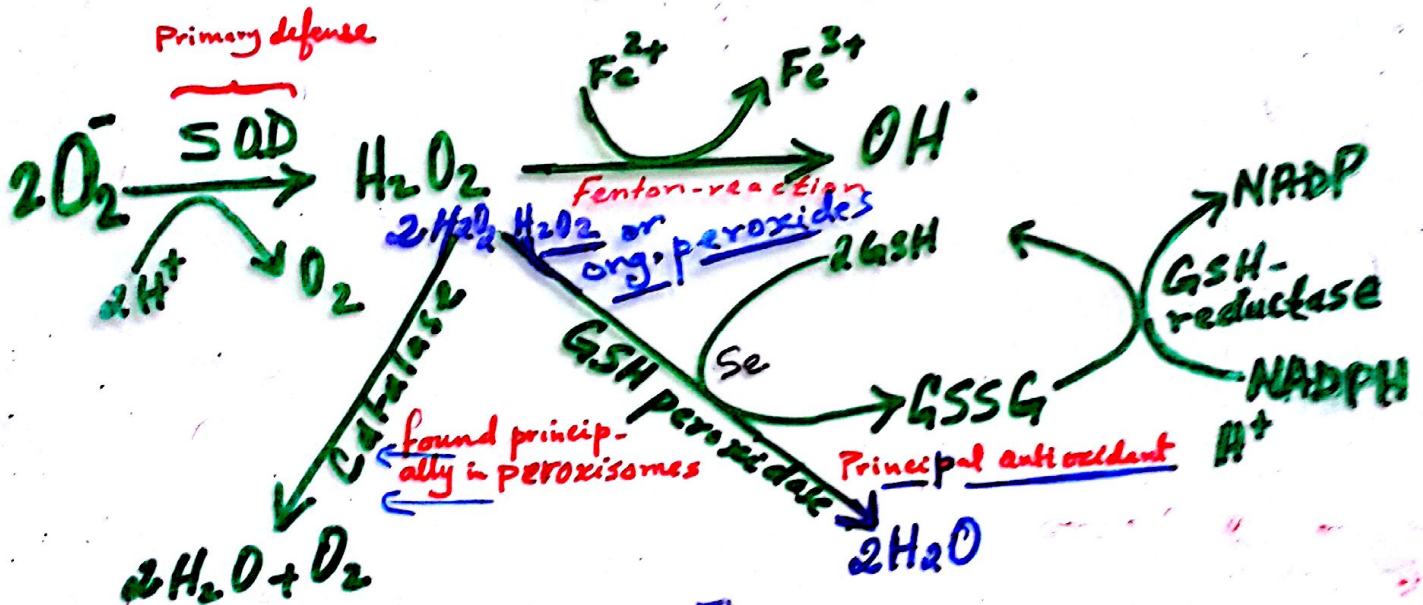 Primary defense
SOD
2O₂⁻
2H⁺
O₂
H₂O₂
Fe²⁺
Fe³⁺
OH·
Fenton-reaction
2H₂O₂
H₂O₂ or
org. peroxides
2GSH
NADP
GSH-
reductase
NADPH
H⁺
Catalase
GSH peroxidase
Se
GSSG
found princip-
ally in peroxisomes
Principal antioxidant
2H₂O + O₂
2H₂O